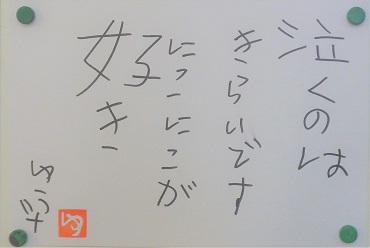 泣くのは
きらいです
にこにこが
好き
ゆうき
ゆ